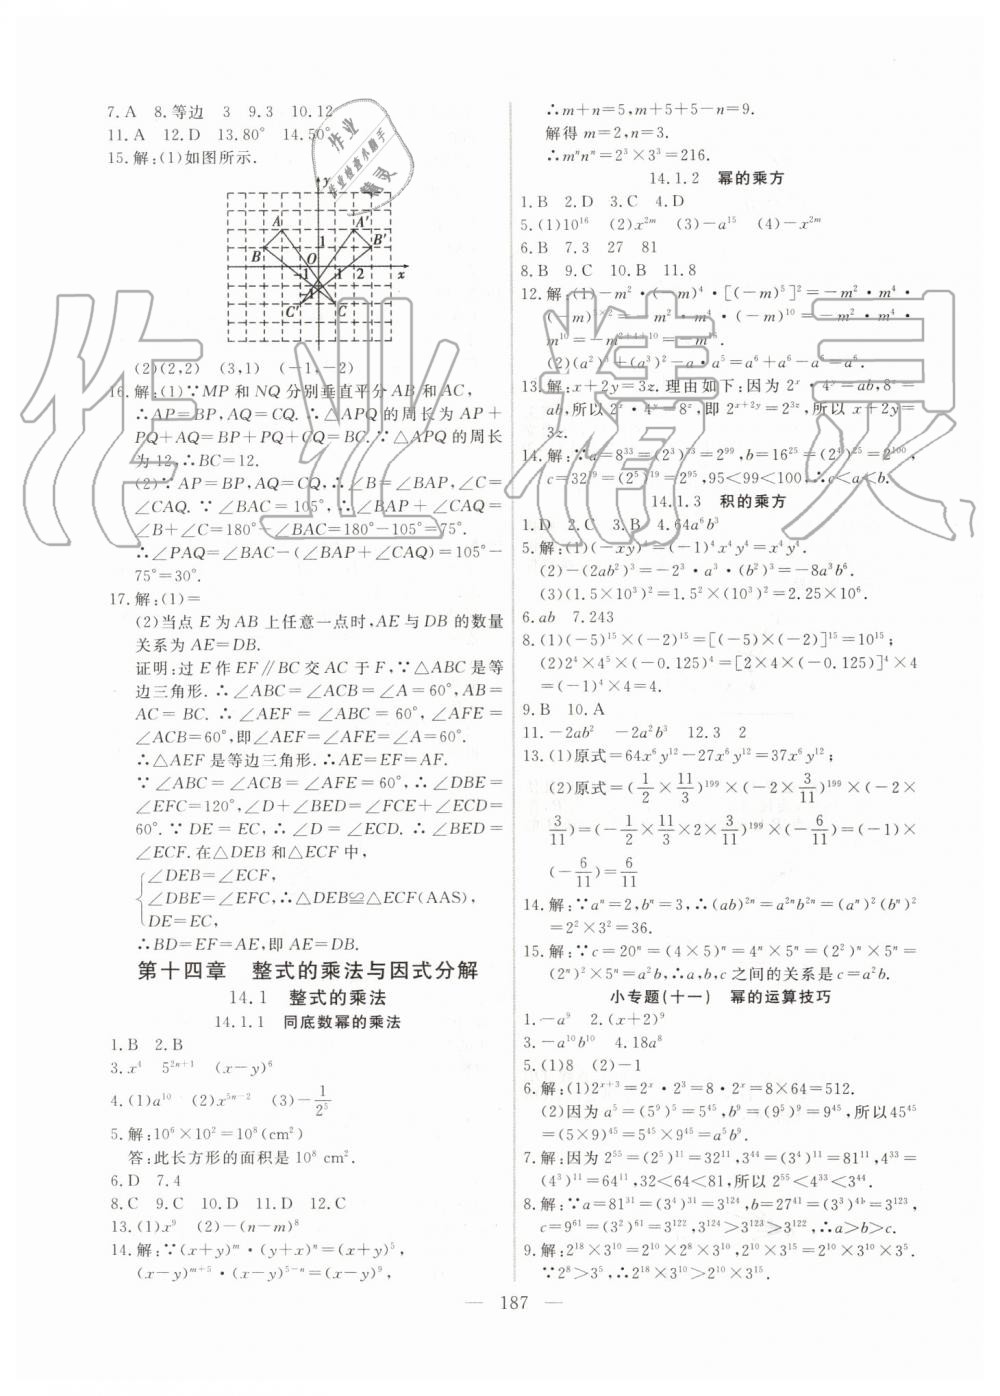 7.A  8.等边  3  9.3  10.12
11.A  12.D  13.80°  14.50°
15.解:(1)如图所示.
(2)(2,2)  (3,1)  (-1,-2)
16.解:(1)∵MP 和 NQ 分别垂直平分 AB 和 AC,
∴AP=BP,AQ=CQ.∴△APQ 的周长为 AP+
PQ+AQ=BP+PQ+CQ=BC.∵△APQ 的周长
为 12,∴BC=12.
(2)∵AP=BP,AQ=CQ,∴∠B=∠BAP,∠C=
∠CAQ.∵∠BAC=105°,∴∠BAP+∠CAQ=
∠B+∠C=180°-∠BAC=180°-105°=75°.
∴∠PAQ=∠BAC-(∠BAP+∠CAQ)=105°-
75°=30°.
17.解:(1)=
(2)当点 E 为 AB 上任意一点时,AE 与 DB 的数量
关系为 AE=DB.
证明:过 E 作 EF∥BC 交 AC 于 F,∵△ABC 是等
边三角形.∴∠ABC=∠ACB=∠A=60°,AB=
AC=BC.∴∠AEF=∠ABC=60°,∠AFE=
∠ACB=60°,即∠AEF=∠AFE=∠A=60°.
∴△AEF 是等边三角形.∴AE=EF=AF.
∵∠ABC=∠ACB=∠AFE=60°,∴∠DBE=
∠EFC=120°,∠D+∠BED=∠FCE+∠ECD=
60°.∵DE=EC,∴∠D=∠ECD.∴∠BED=
∠ECF.在△DEB 和△ECF 中,
∠DEB=∠ECF,
∠DBE=∠EFC,∴△DEB≌△ECF(AAS),
DE=EC,
∴BD=EF=AE,即 AE=DB.
第十四章  整式的乘法与因式分解
14.1  整式的乘法
14.1.1  同底数幂的乘法
1.B  2.B
3.x⁴  5²ⁿ⁺¹  (x-y)⁶
4.(1)a¹⁰  (2)x⁵ⁿ⁻²  (3)-1/2⁵
5.解:10⁶×10²=10⁸(cm²)
答:此长方形的面积是 10⁸ cm².
6.D  7.4
8.C  9.C  10.D  11.D  12.C
13.(1)x⁹  (2)-(n-m)⁸
14.解:∵(x+y)ᵐ·(x+y)ⁿ=(x+y)⁵,
(x-y)ᵐ⁺⁵·(x-y)⁵⁻ⁿ=(x-y)⁹,
∴m+n=5,m+5+5-n=9.
解得 m=2,n=3.
∴mⁿnⁿ=2³×3³=216.
14.1.2  幂的乘方
1.B  2.D  3.C  4.D
5.(1)10¹⁶  (2)x²ᵐ  (3)-a¹⁵  (4)-x²ᵐ
6.B  7.3  27  81
8.B  9.C  10.B  11.8
12.解:(1)-m²·(-m)⁴·[(-m)⁵]²=-m²·m⁴·
(-m)⁵ˣ²=-m²·m⁴·(-m)¹⁰=-m²·m⁴·
m¹⁰=-m²⁺⁴⁺¹⁰=-m¹⁶.
(2)(a²)³+(a³)²-a·a⁵=a⁶+a⁶-a⁶=a⁶.
13.解:x+2y=3z.理由如下:因为 2ˣ·4ʸ=ab,8ᶻ=
ab,所以 2ˣ·4ʸ=8ᶻ,即 2ˣ⁺²ʸ=2³ᶻ,所以 x+2y=
3z.
14.解:∵a=8³³=(2³)³³=2⁹⁹,b=16²⁵=(2⁴)²⁵=2¹⁰⁰,
c=32¹⁹=(2⁵)¹⁹=2⁹⁵,95<99<100,∴c<a<b.
14.1.3  积的乘方
1.D  2.C  3.B  4.64a⁶b³
5.解:(1)(-xy)⁴=(-1)⁴x⁴y⁴=x⁴y⁴.
(2)-(2ab²)³=-2³·a³·(b²)³=-8a³b⁶.
(3)(1.5×10³)²=1.5²×(10³)²=2.25×10⁶.
6.ab  7.243
8.(1)(-5)¹⁵×(-2)¹⁵=[(-5)×(-2)]¹⁵=10¹⁵;
(2)2⁴×4⁵×(-0.125)⁴=[2×4×(-0.125)]⁴×4
=(-1)⁴×4=4.
9.B  10.A
11.-2ab²  -2a²b³  12.3  2
13.(1)原式=64x⁶y¹²-27x⁶y¹²=37x⁶y¹²;
(2)原式=(1/2×11/3)¹⁹⁹×(-2×3/11)¹⁹⁹×(-2×
3/11)=(-1/2×11/3×2×3/11)¹⁹⁹×(-6/11)=(-1)×
(-6/11)=6/11.
14.解:∵aⁿ=2,bⁿ=3,∴(ab)²ⁿ=a²ⁿb²ⁿ=(aⁿ)²(bⁿ)²
=2²×3²=36.
15.解:∵c=20ⁿ=(4×5)ⁿ=4ⁿ×5ⁿ=(2²)ⁿ×5ⁿ=
(2ⁿ)²×5ⁿ=a²b,∴a,b,c 之间的关系是 c=a²b.
小专题(十一)  幂的运算技巧
1.-a⁹  2.(x+2)⁹
3.-a¹⁰b¹⁰  4.18a⁸
5.(1)8  (2)-1
6.解:(1)2ˣ⁺³=2ˣ·2³=8·2ˣ=8×64=512.
(2)因为 a⁵=(5⁹)⁵=5⁴⁵,b⁹=(9⁵)⁹=9⁴⁵,所以45⁴⁵
=(5×9)⁴⁵=5⁴⁵×9⁴⁵=a⁵b⁹.
7.解:因为 2⁵⁵=(2⁵)¹¹=32¹¹,3⁴⁴=(3⁴)¹¹=81¹¹,4³³
=(4³)¹¹=64¹¹,32<64<81,所以 2⁵⁵<4³³<3⁴⁴.
8.解:∵a=81³¹=(3⁴)³¹=3¹²⁴,b=27⁴¹=(3³)⁴¹=3¹²³,
c=9⁶¹=(3²)⁶¹=3¹²²,3¹²⁴>3¹²³>3¹²²,∴a>b>c.
9.解:2¹⁸×3¹⁰=2¹⁰×2⁸×3¹⁰,2¹⁰×3¹⁵=2¹⁰×3¹⁰×3⁵.
∵2⁸>3⁵,∴2¹⁸×3¹⁰>2¹⁰×3¹⁵.
— 187 —
作业精灵